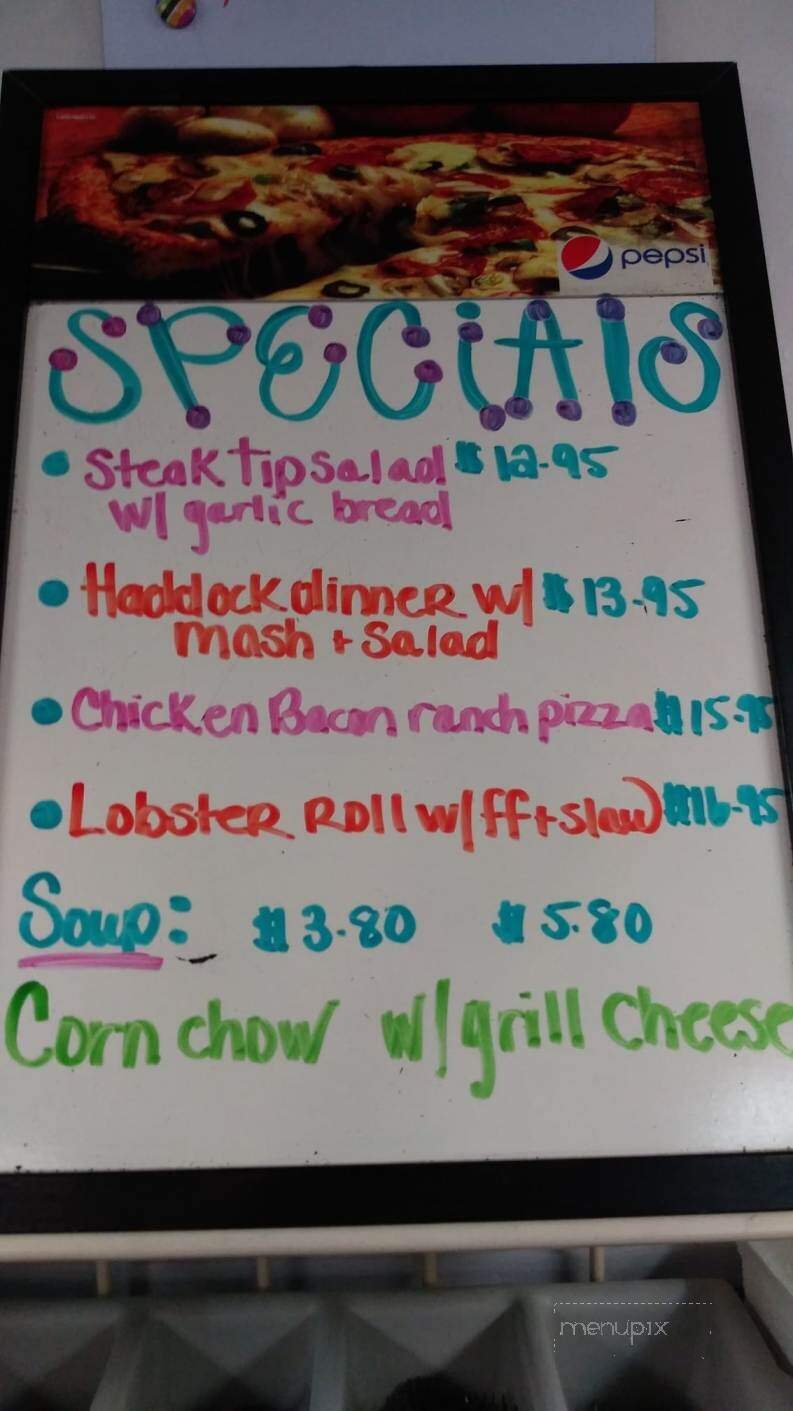 pepsi
SPECiAlS
• Steak tip salad $12.95
w/ garlic bread
• Haddock dinneR w/ $13.95
mash + Salad
• Chicken Bacon ranch pizza $15.95
• LobsteR Roll w/ff+slaw) $16.95
Soup: $3.80 $5.80
Corn chow w/grill cheese
menupix